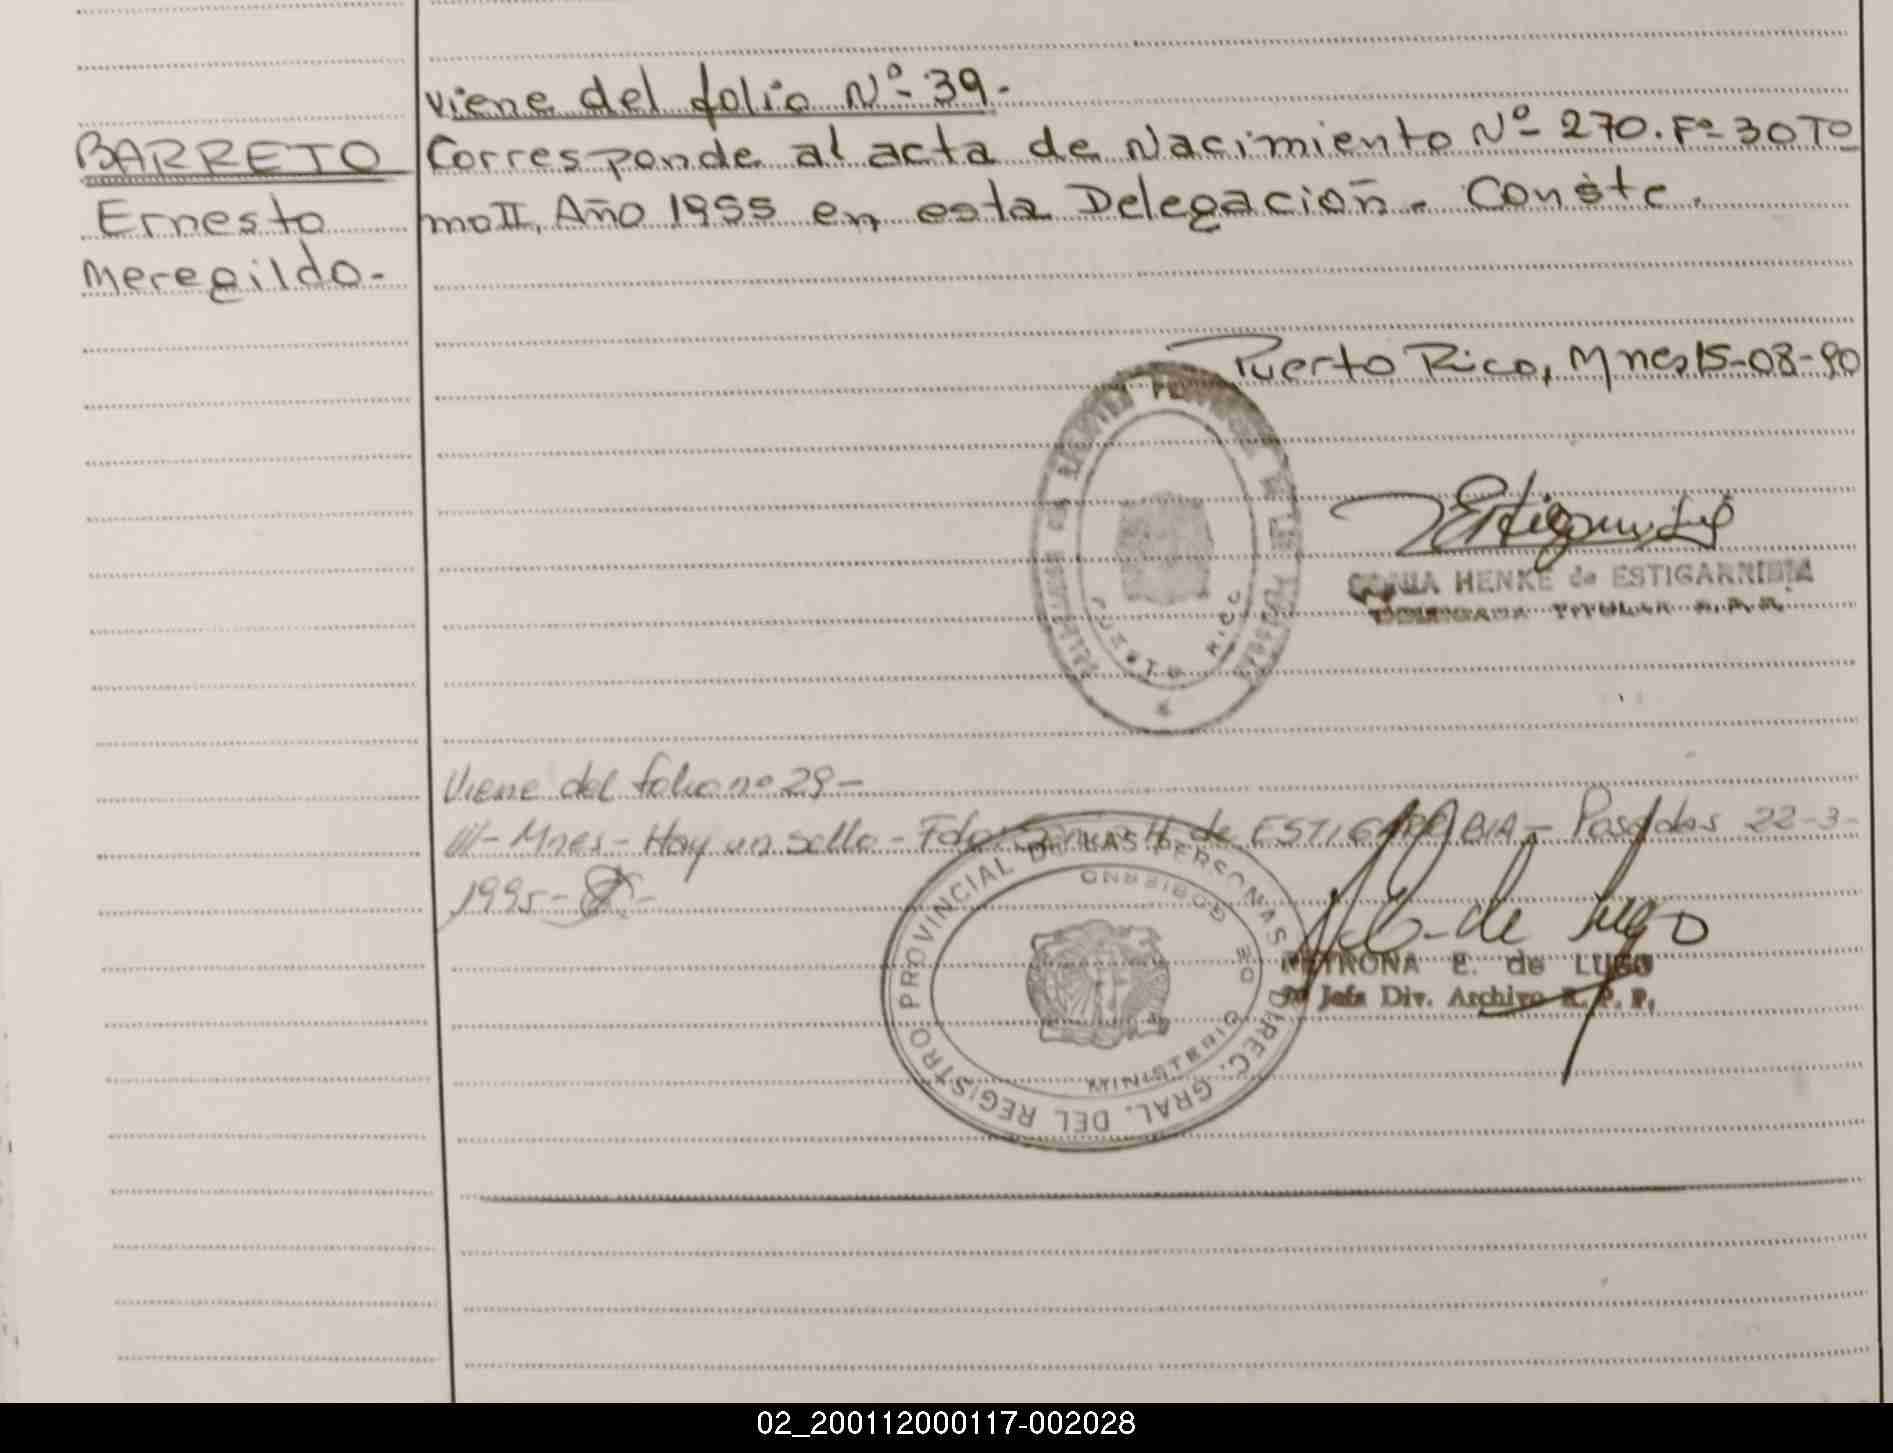 viene del folio Nº 39.-
BARRETO
Corresponde al acta de Nacimiento Nº 270. Fº 30 To
Ernesto
mo II, Año 1955 en esta Delegación.- Conste.
Meregildo.-
Puerto Rico, Mnes 15-08-90
HENKE de ESTIGARRIBIA
TITULAR R.P.P.
PUERTO RICO
Viene del folio nº 29-
///- Mnes- Hay un sello- Fdo: H. de ESTIGARRIBIA- Posadas 22-3-
1995-
REGISTRO PROVINCIAL DE LAS PERSONAS
DIREC. GRAL. DEL
MINISTERIO DE GOBIERNO
PETRONA E. de LUGO
Jefa Div. Archivo R.P.P.
02_200112000117-002028